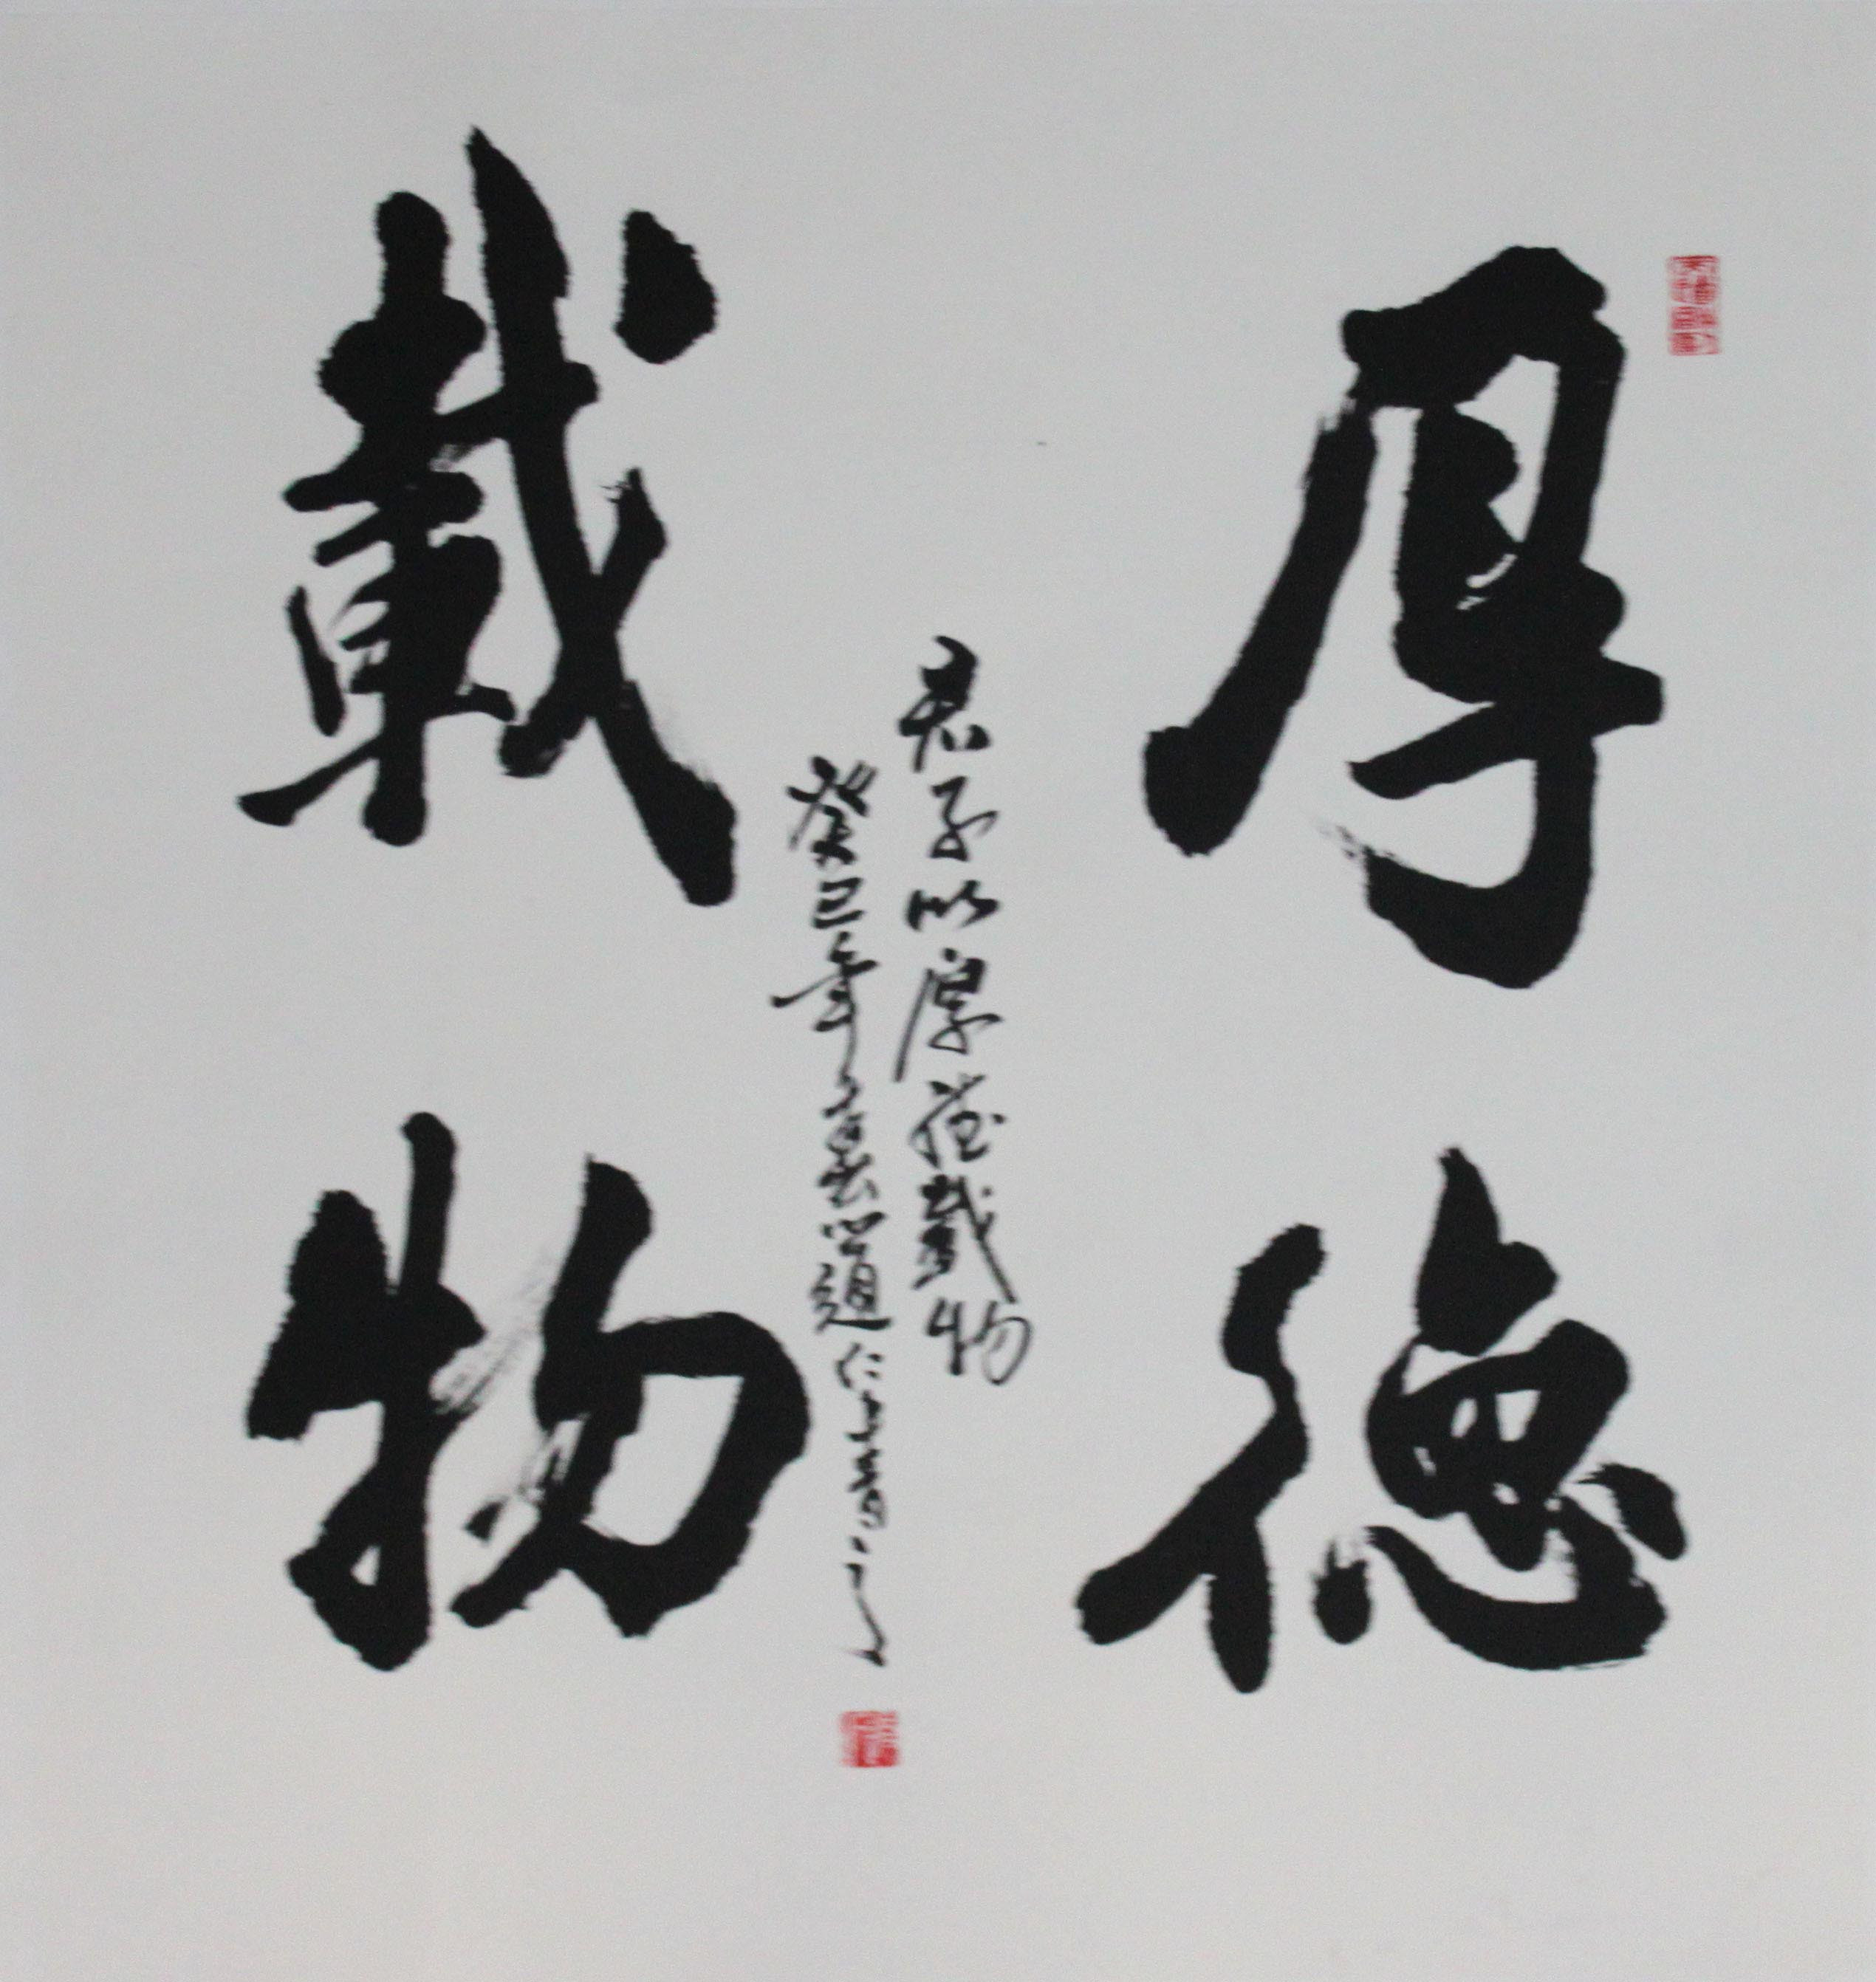 厚德
載物
君子以厚德載物
癸巳年